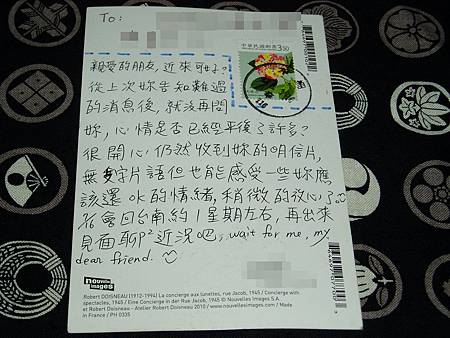 To:
中華民國郵票 3.50
親愛的朋友,近來可好?
從上次妳告知難過
的消息後,就沒再問
妳,心情是否已經平復了許多?
很開心仍然收到妳的明信片,
無字片語但也能感受一些妳應
該還ok的情緒,稍微的放心了
會回台南約1星期左右,再出來
見面聊聊近況吧, wait for me, my
dear friend.
nouvelles images
Robert DOISNEAU (1912-1994) La concierge aux lunettes, rue Jacob, 1945 / Concierge with
spectacles, 1945 / Eine Concierge in der Rue Jacob, 1945 © Nouvelles Images S.A.
et Robert Doisneau - Atelier Robert Doisneau 2010 / www.nouvellesimages.com / Made
in France / PH 0335